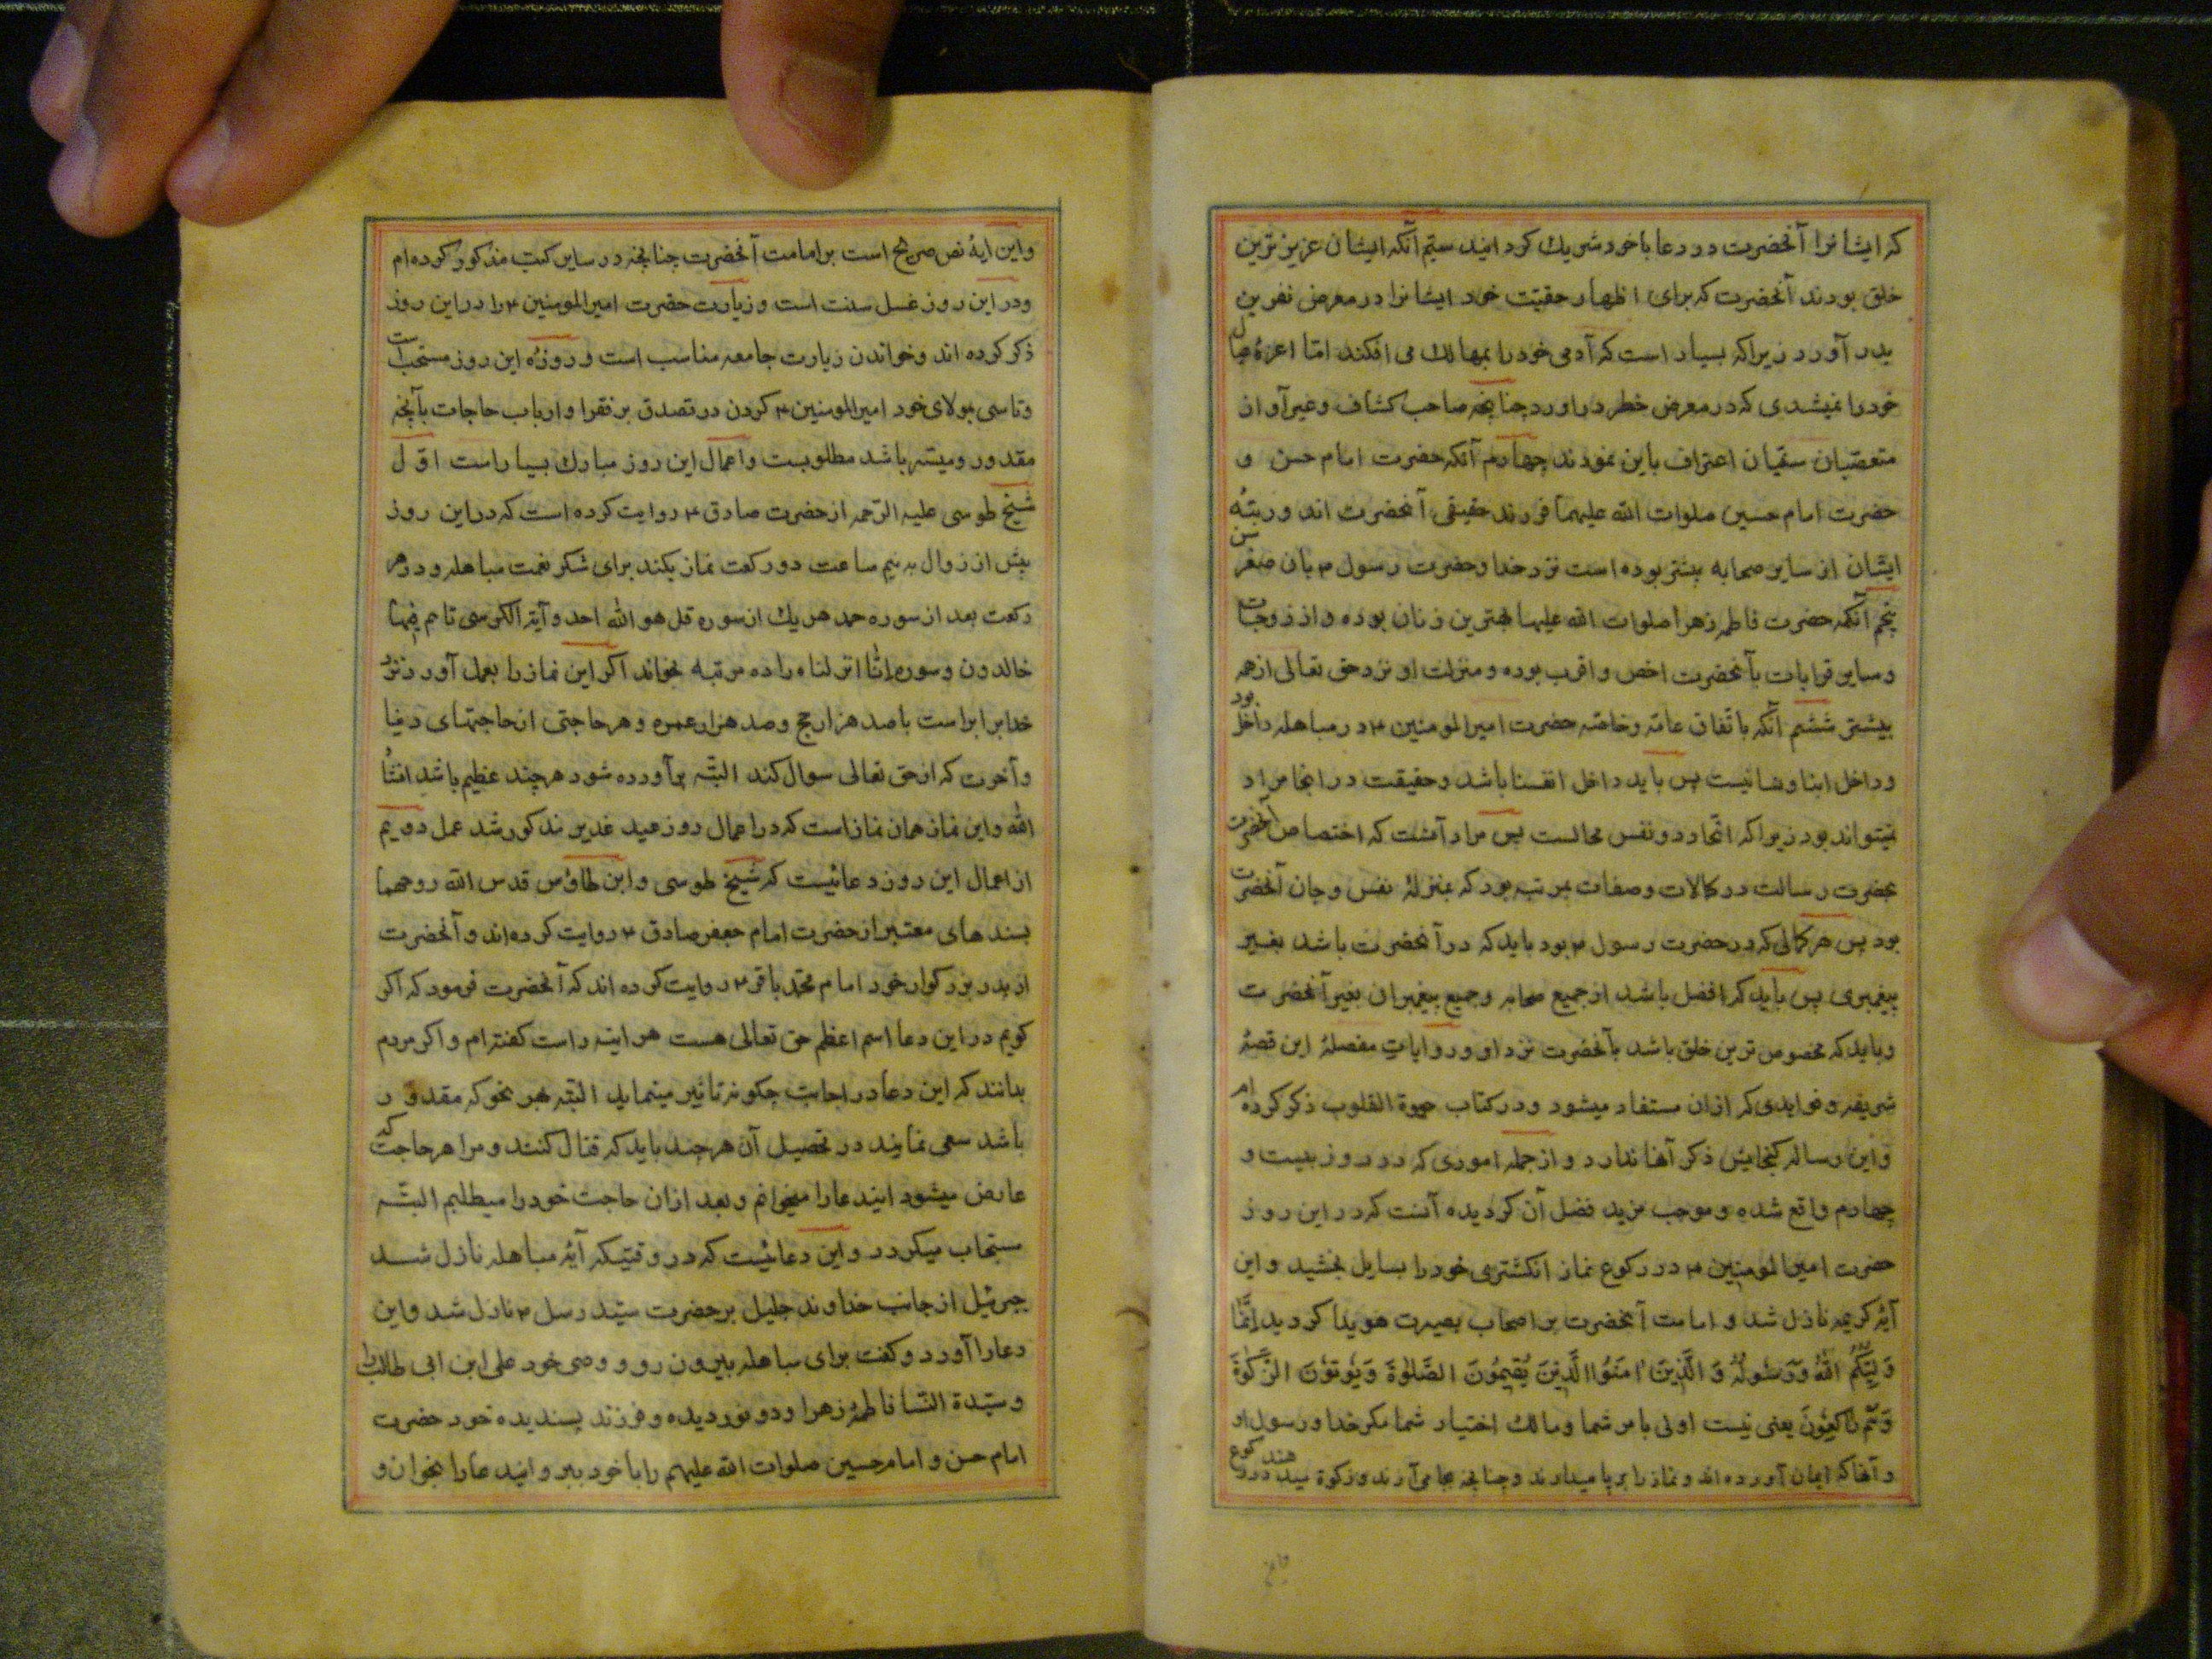 که ایشانرا آنحضرت در دعا با خود شریك کردانید سیّم آنکه ایشان عزیزترین
خلق بودند آنحضرت که برای اظهار حقیّت خود ایشانرا در معرض نفرین
بدر آورد زیرا که بسیار است که آدمی خود را بمهالك می افکند امّا اعزهٔ
خود را نمیشدی که در معرض خطر دراورد چنانچه صاحب کشاف و غیر آو از
متعصّبان سنّیان اعتراف باین نمودند چهارم آنکه حضرت امام حسن و
حضرت امام حسین صلوات الله علیهما فرزند حقیقی آنحضرت اند و رتبهٔ
ایشان از سایر صحابه بیشتر بوده است نزد خدا و حضرت رسول ۳ بان صغر سن
پنجم آنکه حضرت فاطمه زهرا صلوات الله علیها بهترین زنان بوده و از زوجات
و سایر قرابات بآنحضرت اخص و اقرب بوده و منزلت او نزد حق تعالی از همه
بیشتر ششم آنکه باتّفاق عامّه و خاصّه حضرت امیرالمومنین ۴ در مباهله داخل بود
و داخل ابنا و نسا نیست پس باید داخل انفسنا باشد و حقیقت در اینجا مراد
نمیتواند بود زیرا که اتّحاد دو نفس محالست پس مراد آنست که اختصاص آنحضرت
بحضرت رسالت در کمالات و صفات بمرتبه بود که بمنزلهٔ نفس و جان آنحضرت
بود پس هر کمالی که در حضرت رسول ۳ بود باید که در آنحضرت باشد بغیر
پیغمبری پس باید که افضل باشد از جمیع صحابه و جمیع پیغمبران بغیر آنحضرت
و باید که مخصوص ترین خلق باشد بآنحضرت نزد او و روایات مفصلهٔ این قصّهٔ
شریفه و فوایدی که ازان مستفاد میشود و در کتاب حیوة القلوب ذکر کرده ام
و این رساله کنجایش ذکر آنها ندارد و از جمله اموری که در روز بیست و
چهارم واقع شده و موجب مزید فضل آن کردیده آنست که در این روز
حضرت امیرالمومنین ۴ در رکوع نماز انکشتری خود را بسایل بخشید و این
آیهٔ کریمه نازل شد و امامت آنحضرت بر اصحاب بصیرت هویدا کردید اِنَّمَا
وَلِیُّکُمُ اللهُ وَرَسُولُهُ وَ الَّذِینَ اٰمَنُوا الَّذِینَ یُقِیمُونَ الصَّلٰوةَ وَیُوتُونَ الزَّکٰوةَ
وَهُم رٰاکِعُونَ یعنی نیست اولی بامر شما و مالك اختیار شما مکر خدا و رسول او
و آنها که ایمان آورده اند و نماز را بر پا میدارند و چنانچه بجا می آرند و زکوة میدهند در رکوع
واین
و این ایهٔ نص صریح است بر امامت آنحضرت چنانچه در سایر کتب مذکور کرده ام
و در این روز غسل سنت است و زیارت حضرت امیرالمومنین ۴ را در این روز
ذکر کرده اند و خواندن زیارت جامعه مناسب است و روزهٔ این روز مستحب است
و تاسی بمولای خود امیرالمومنین ۴ کردن در تصدق بر فقرا و ارباب حاجات بآنچه
مقدور و میسّر باشد مطلوبست و اعمال این روز مبارك بسیار است اوّل
شیخ طوسی علیه الرّحمه از حضرت صادق ۴ روایت کرده است که در این روز
پیش از زوال به نیم ساعت دو رکعت نماز بکند برای شکر نعمت مباهله و در هر
رکعت بعد از سوره حمد هر یك از سوره قل هو الله احد و آیة الکرسی تا هم فیها
خالدون و سوره انّا انزلناه را ده مرتبه بخواند اکر این نماز را بعمل آورد نزد
خدا برابر است با صد هزار حج و صد هزار عمره و هر حاجتی از حاجتهای دنیا
و آخرت که از حق تعالی سوال کند البتّه برآورده شود هر چند عظیم باشد انشاُ
الله و این نماز همان نماز است که در اعمال روز عید غدیر مذکور شد عمل دویم
از اعمال این روز دعائیست که شیخ طوسی و ابن طاوُس قدس الله روحهما
بسندهای معتبر از حضرت امام جعفر صادق ۴ روایت کرده اند و آنحضرت
از پدر بزرکوار خود امام محمّد باقر ۴ روایت کرده اند که آنحضرت فرمود که اکر
کویم در این دعا اسم اعظم حق تعالی هست هر اینه راست کفته ام و اکر مردم
بدانند که این دعا در اجابت چکونه تاثیر مینماید البتّه بهر نحو که مقدور
باشد سعی نمایند در تحصیل آن هر چند باید که قتال کنند و مرا هر حاجت که
عارض میشود ایندعا را میخوانم و بعد ازان حاجت خود را میطلبم البتّه
مستجاب میکردد و این دعائیست که در وقتیکه آیهٔ مباهله نازل شد
جبرئیل از جانب خداوند جلیل بر حضرت سیّد رسل ۳ نازل شد و این
دعا را آورد و کفت برای مباهله بیرون رو و وصی خود علی ابن ابی طالب را
و سیّدة النّسا فاطمهٔ زهرا و دو نور دیده و فرزند پسندیده خود حضرت
امام حسن و امام حسین صلوات الله علیهم را با خود ببر و ایندعا را بخوان و